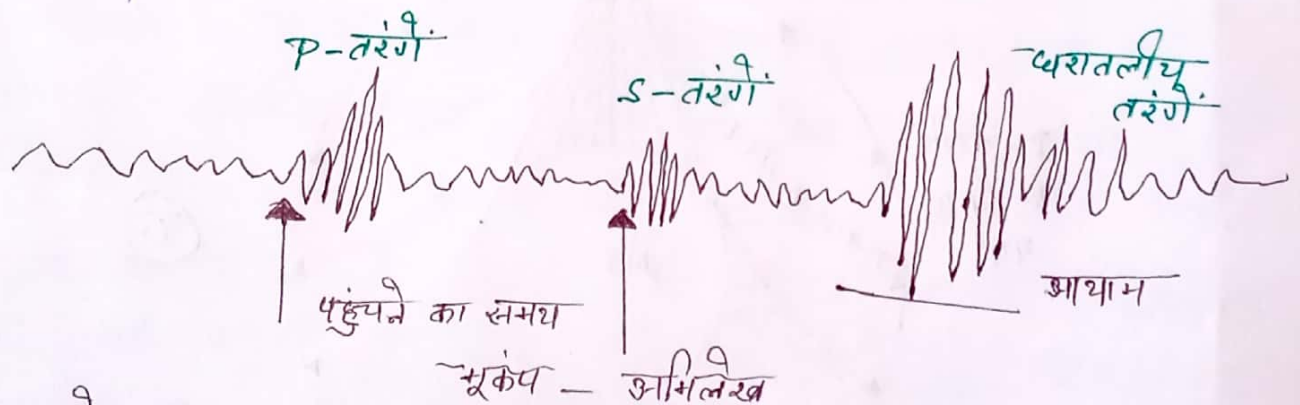 P-तरंगें
S-तरंगें
धरातलीय
तरंगें
पहुंचने का समय
आयाम
भूकंप - अभिलेख